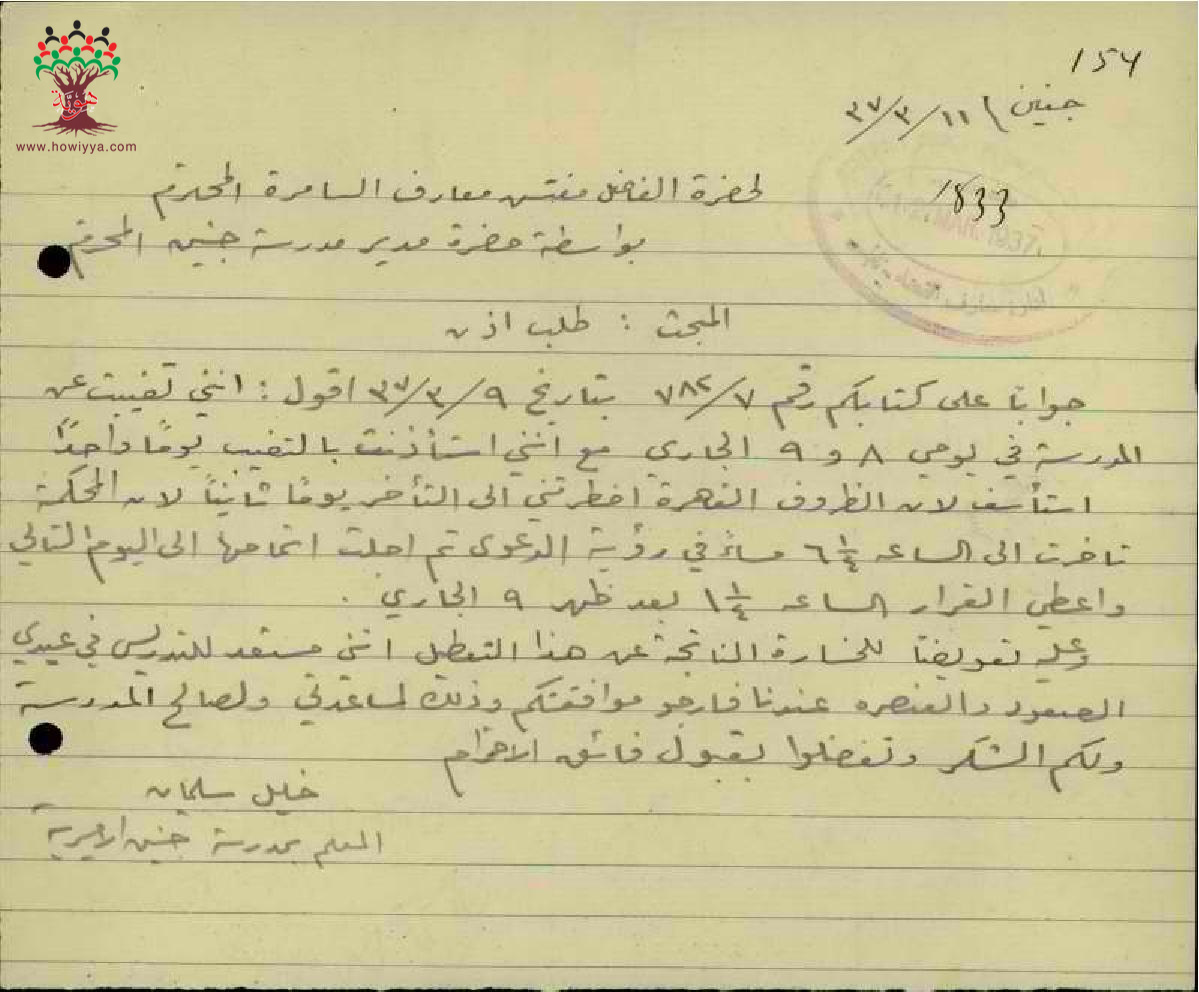 154
جنين ١١/٣/٣٧
هوية
www.howiyya.com
1833
MAR. 1937
لحضرة الفاضل مفتش معارف السامرة المحترم
بواسطة حضرة مدير مدرسة جنين المحترم
المبحث : طلب اذن
جواباً على كتابكم رقم ٧٨٢/٧ بتاريخ ٩/٣/٣٧ اقول : انني تغيبت عن
المدرسة في يومي ٨ و ٩ الجاري مع انني استأذنت بالتغيب يوماً واحداً
استأسف لان الظروف القاهرة اضطرتني الى التأخر يوماً ثانياً لان المحكمة
تاخرت الى الساعه ٦¼ مساءً في رؤية الدعوى ثم اجلت اتمامها الى اليوم التالي
واعطي القرار الساعه ١¼ بعد ظهر ٩ الجاري .
وعليه تعويضاً للخسارة الناتجة عن هذا التعطل انني مستعد للتدريس في عيدي
الصعود والعنصره عندنا فارجو موافقتكم وذلك لمساعدتي ولصالح المدرسة
ولكم الشكر وتفضلوا بقبول فائق الاحترام
خليل سلمان
المعلم بمدرسة جنين الاميرية